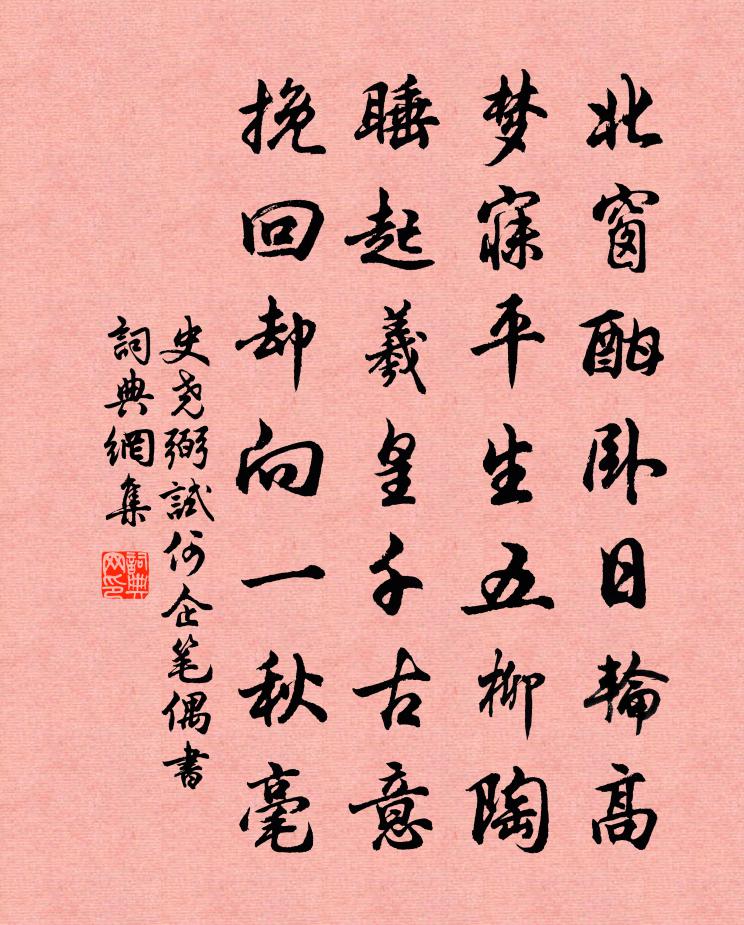 北窗酣卧日輪高
梦寐平生五柳陶
睡起羲皇千古意
挽回却向一秋毫
史尧弼試何企笔偶書
詞典網集
詞典
网印